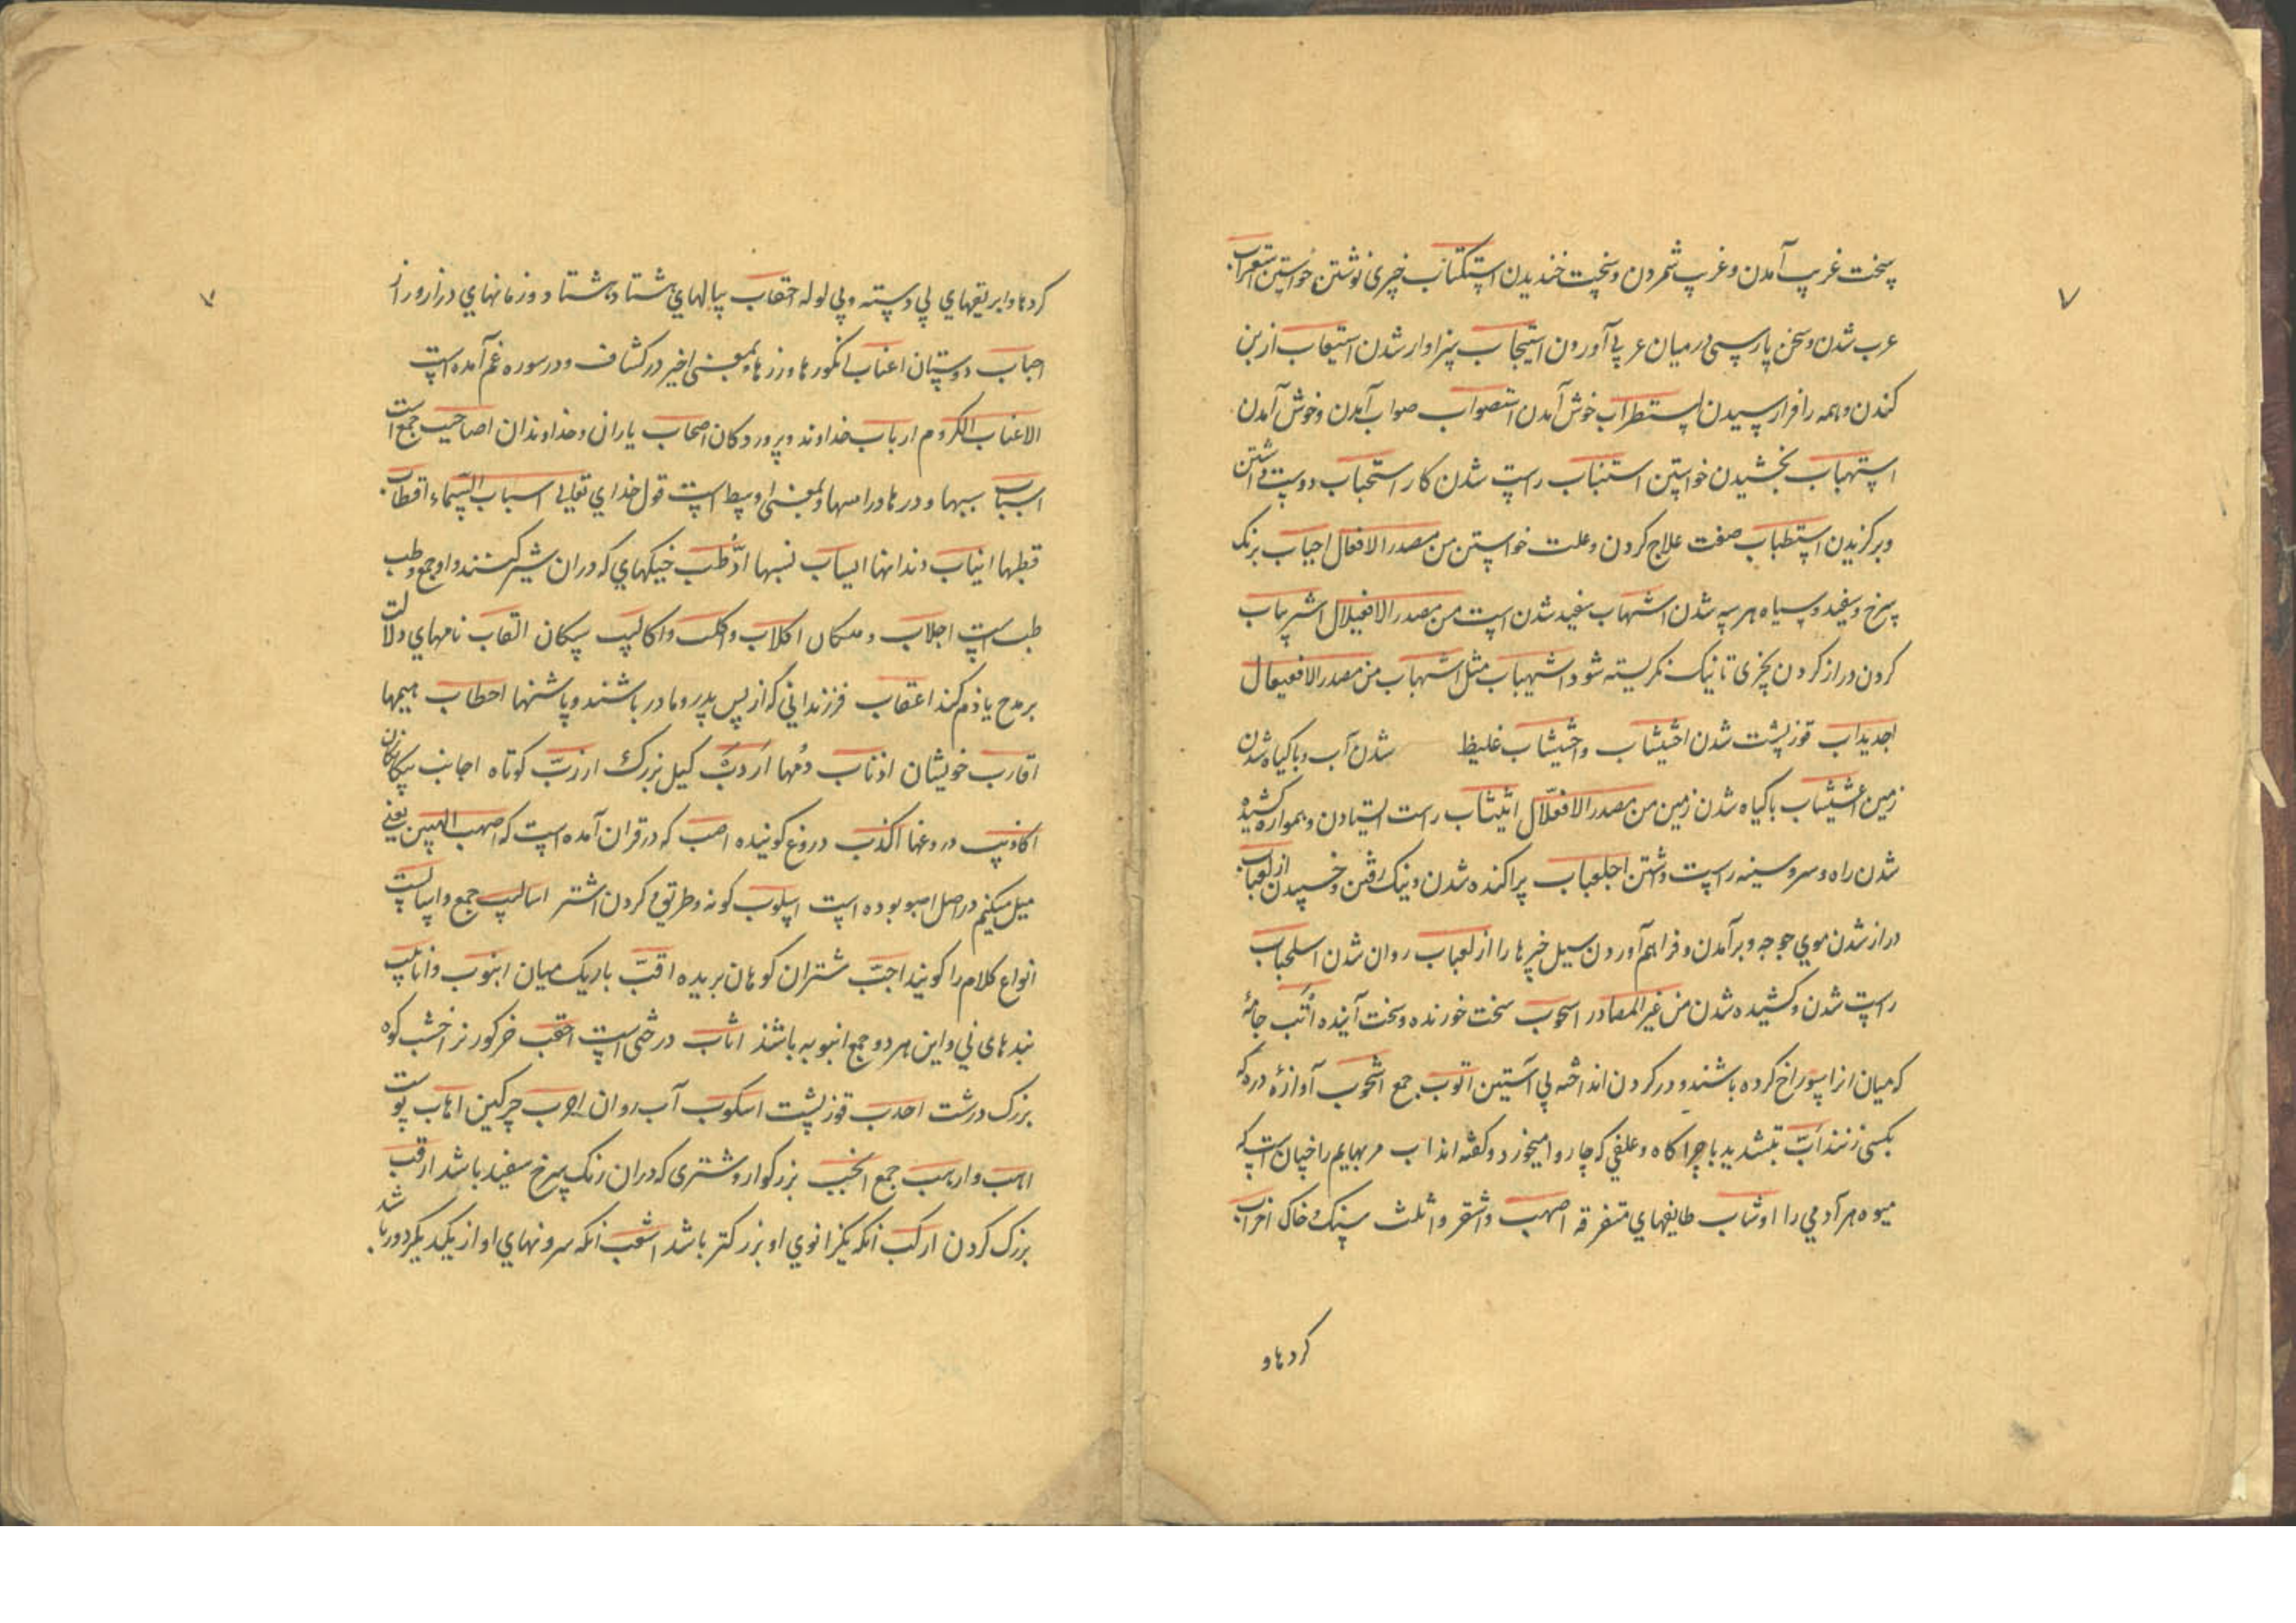 ۷
سخت غریب آمدن و غریب شمردن و سخت خندیدن استکتاب چیزی نوشتن خواستن استعراب
عرب شدن و سخن پارسی درمیان عربی آوردن استیجاب سزاوار شدن استیعاب از بن
کندن و همه را فرا رسیدن استطراب خوش آمدن استصواب صواب آمدن و خوش آمدن
استهباب بخشیدن خواستن استتباب راست شدن کار استحباب دوست داشتن
و برگزیدن استطباب صفت علاج کردن و علت خواستن من مصدر الافعال احباب برنک
سرخ و سفید و سیاه هر سه شدن اشهباب سفید شدن است من مصدر الافعیلال اشریباب
کردن دراز کردن بچیزی تا نیک نکریسته شود اشهیباب مثل اشهباب من مصدر الافعیعال
احدیداب قوز پشت شدن اخشیشاب و اخشیشاب غلیظ شدن آب و با کیاه شدن
زمین اعشیشاب باکیاه شدن زمین من مصدر الافعلّال اتیثاب راست ایستادن و هموار کشیده
شدن راه و سر و سینه راست داشتن اجلعباب پراکنده شدن و نیک رفتن و خسپیدن ازلغباب
دراز شدن موی جوجه و برآمدن و فراهم آوردن سیل چیزها را ازلعباب روان شدن اسلحباب
راست شدن و کشیده شدن من غیر المصادر اسحوب سخت خورنده و سخت آینده اُتَب جامهٔ
که میان انرا سوراخ کرده باشند و در کردن انداخته بی آستین اتوب جمع اشخوب آوازهٔ دره که
بکسی زنند ابّ بتشدید با چراکاه و علفی که چاروا میخورد و کفته اند اب مر بهایم را چنان است که
میوه هر آدمی را اوشاب طایفهای متفرقه اصهب و اشقر و اثلث سنک و خاک اخراب
کردها و
۷
کردها و ابریقهای بی دسته و بی لوله احقاب سالهای هشتاد هشتاد و زمانهای دراز و دراز
احباب دوستان اعناب انکورها و رزها و بمعنی اخیر در کشاف و در سوره عم آمده است
الاعناب الکروم ارباب خداوند و پروردکان اصحاب یاران و خداوندان اصاحیب جمع است
اسباب سببها و درها و راهها و بمعنی اوسط است قول خدای تعالی اسباب السماء اقطاب
قطبها انیاب دندانها انساب نسبها اَوطُب خیکهای که دران شیر کنند و او جمع وطب
طب است اجلاب و اکلاب و اکلب و اکالیب سکان القاب نامهای دلالت
بر مدح یا ذم کند اعقاب فرزندانی که از پس پدر و مادر باشند و پاشنها احطاب هیمها
اقارب خویشان اذناب دُمها اَردَبّ کیل بزرک ارزبّ کوتاه اجانب بیکانکان
اکاذیب دروغها اکذب دروغ کوینده اصب که در قران آمده است که اصب الیهن یعنی
میل میکنم در اصل اصبو بوده است اسلوب کونه و طریق و کردن اشتر اسالیب جمع و اسالیب
انواع کلام را کویند اجبّ شتران کوهان بریده اقبّ باریک میان انبوب و انابیب
بندهای نی و این هر دو جمع انبوبه باشد اثاب درختی است احقب خرکور نر اخشب کوه
بزرک درشت احدب قوز پشت اسکوب آب روان اجرب چرکین اهاب پوست
اهب و اربب جمع انجب بزرکوار و شتری که دران رنک سرخ سفید باشد ارقب
بزرک کردن ارکب انکه یکزانوی او بزرکتر باشد اشعب انکه سرونهای او از یکدیکر دور باشد